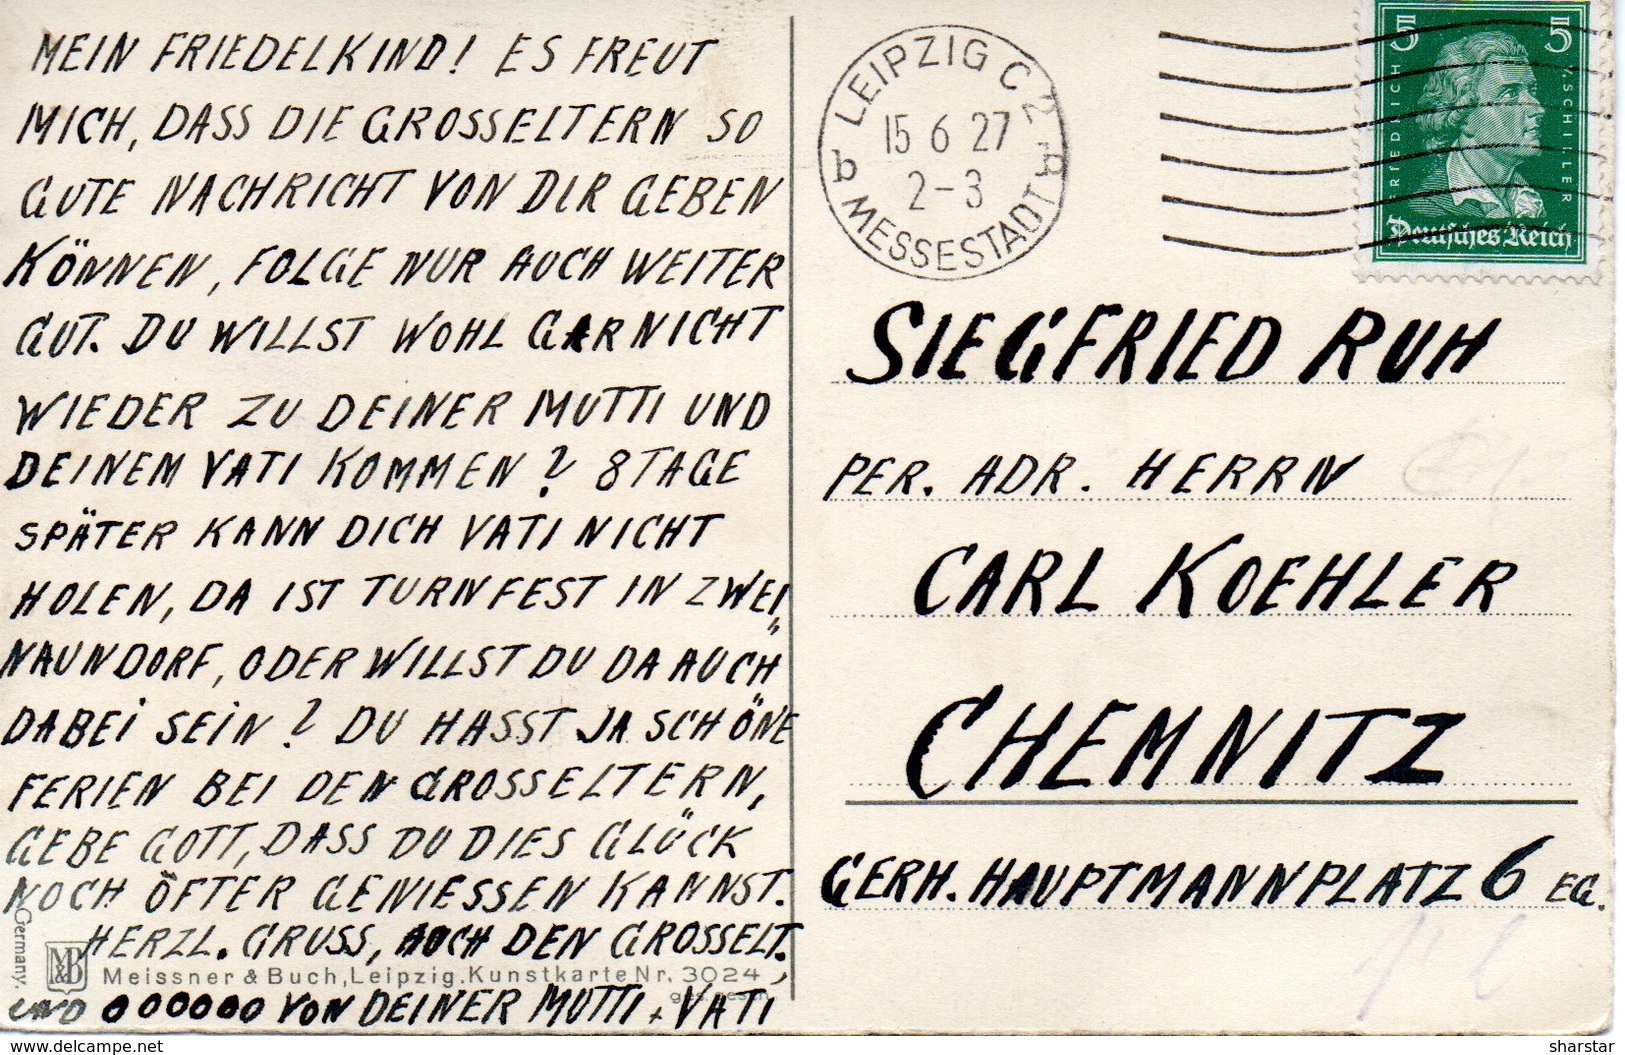 MEIN FRIEDELKIND! ES FREUT
MICH, DASS DIE GROSSELTERN SO
GUTE NACHRICHT VON DIR GEBEN
KÖNNEN, FOLGE NUR AUCH WEITER
GUT. DU WILLST WOHL GARNICHT
WIEDER ZU DEINER MUTTI UND
DEINEM VATI KOMMEN? 8 TAGE
SPÄTER KANN DICH VATI NICHT
HOLEN, DA IST TURNFEST IN ZWEI,,
NAUNDORF, ODER WILLST DU DA AUCH
DABEI SEIN? DU HASST JA SCHÖNE
FERIEN BEI DEN GROSSELTERN,
GEBE GOTT, DASS DU DIES GLÜCK
NOCH ÖFTER GENIESSEN KANNST.
HERZL. GRUSS, AUCH DEN GROSSELT.,
UND OOOOOO VON DEINER MUTTI + VATI
Germany.
M&B
Meissner & Buch, Leipzig. Kunstkarte Nr. 3024
ges. gesch.
LEIPZIG C2
15 6 27
2-3
b MESSESTADT
5 5
FRIEDRICH V. SCHILLER
Deutsches Reich
SIEGFRIED RUH
PER. ADR. HERRN
CARL KOEHLER
CHEMNITZ
GERH. HAUPTMANNPLATZ 6 EG.
www.delcampe.net
sharstar